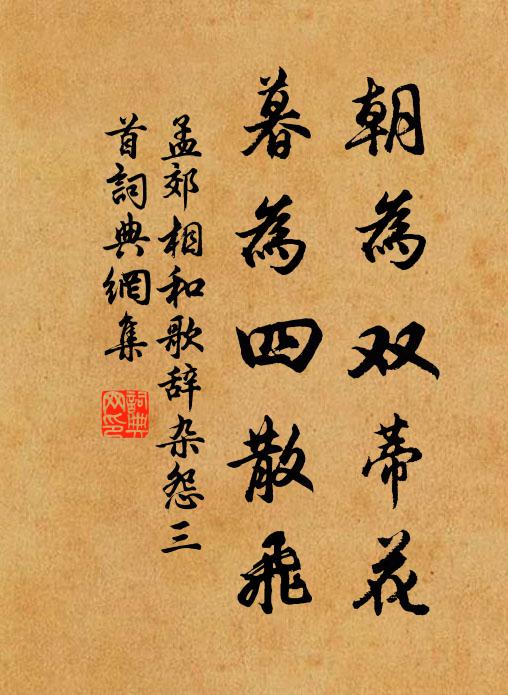 朝為双蒂花
暮為四散飛
孟郊相和歌辞杂怨三
首詞典網集
詞典
网印